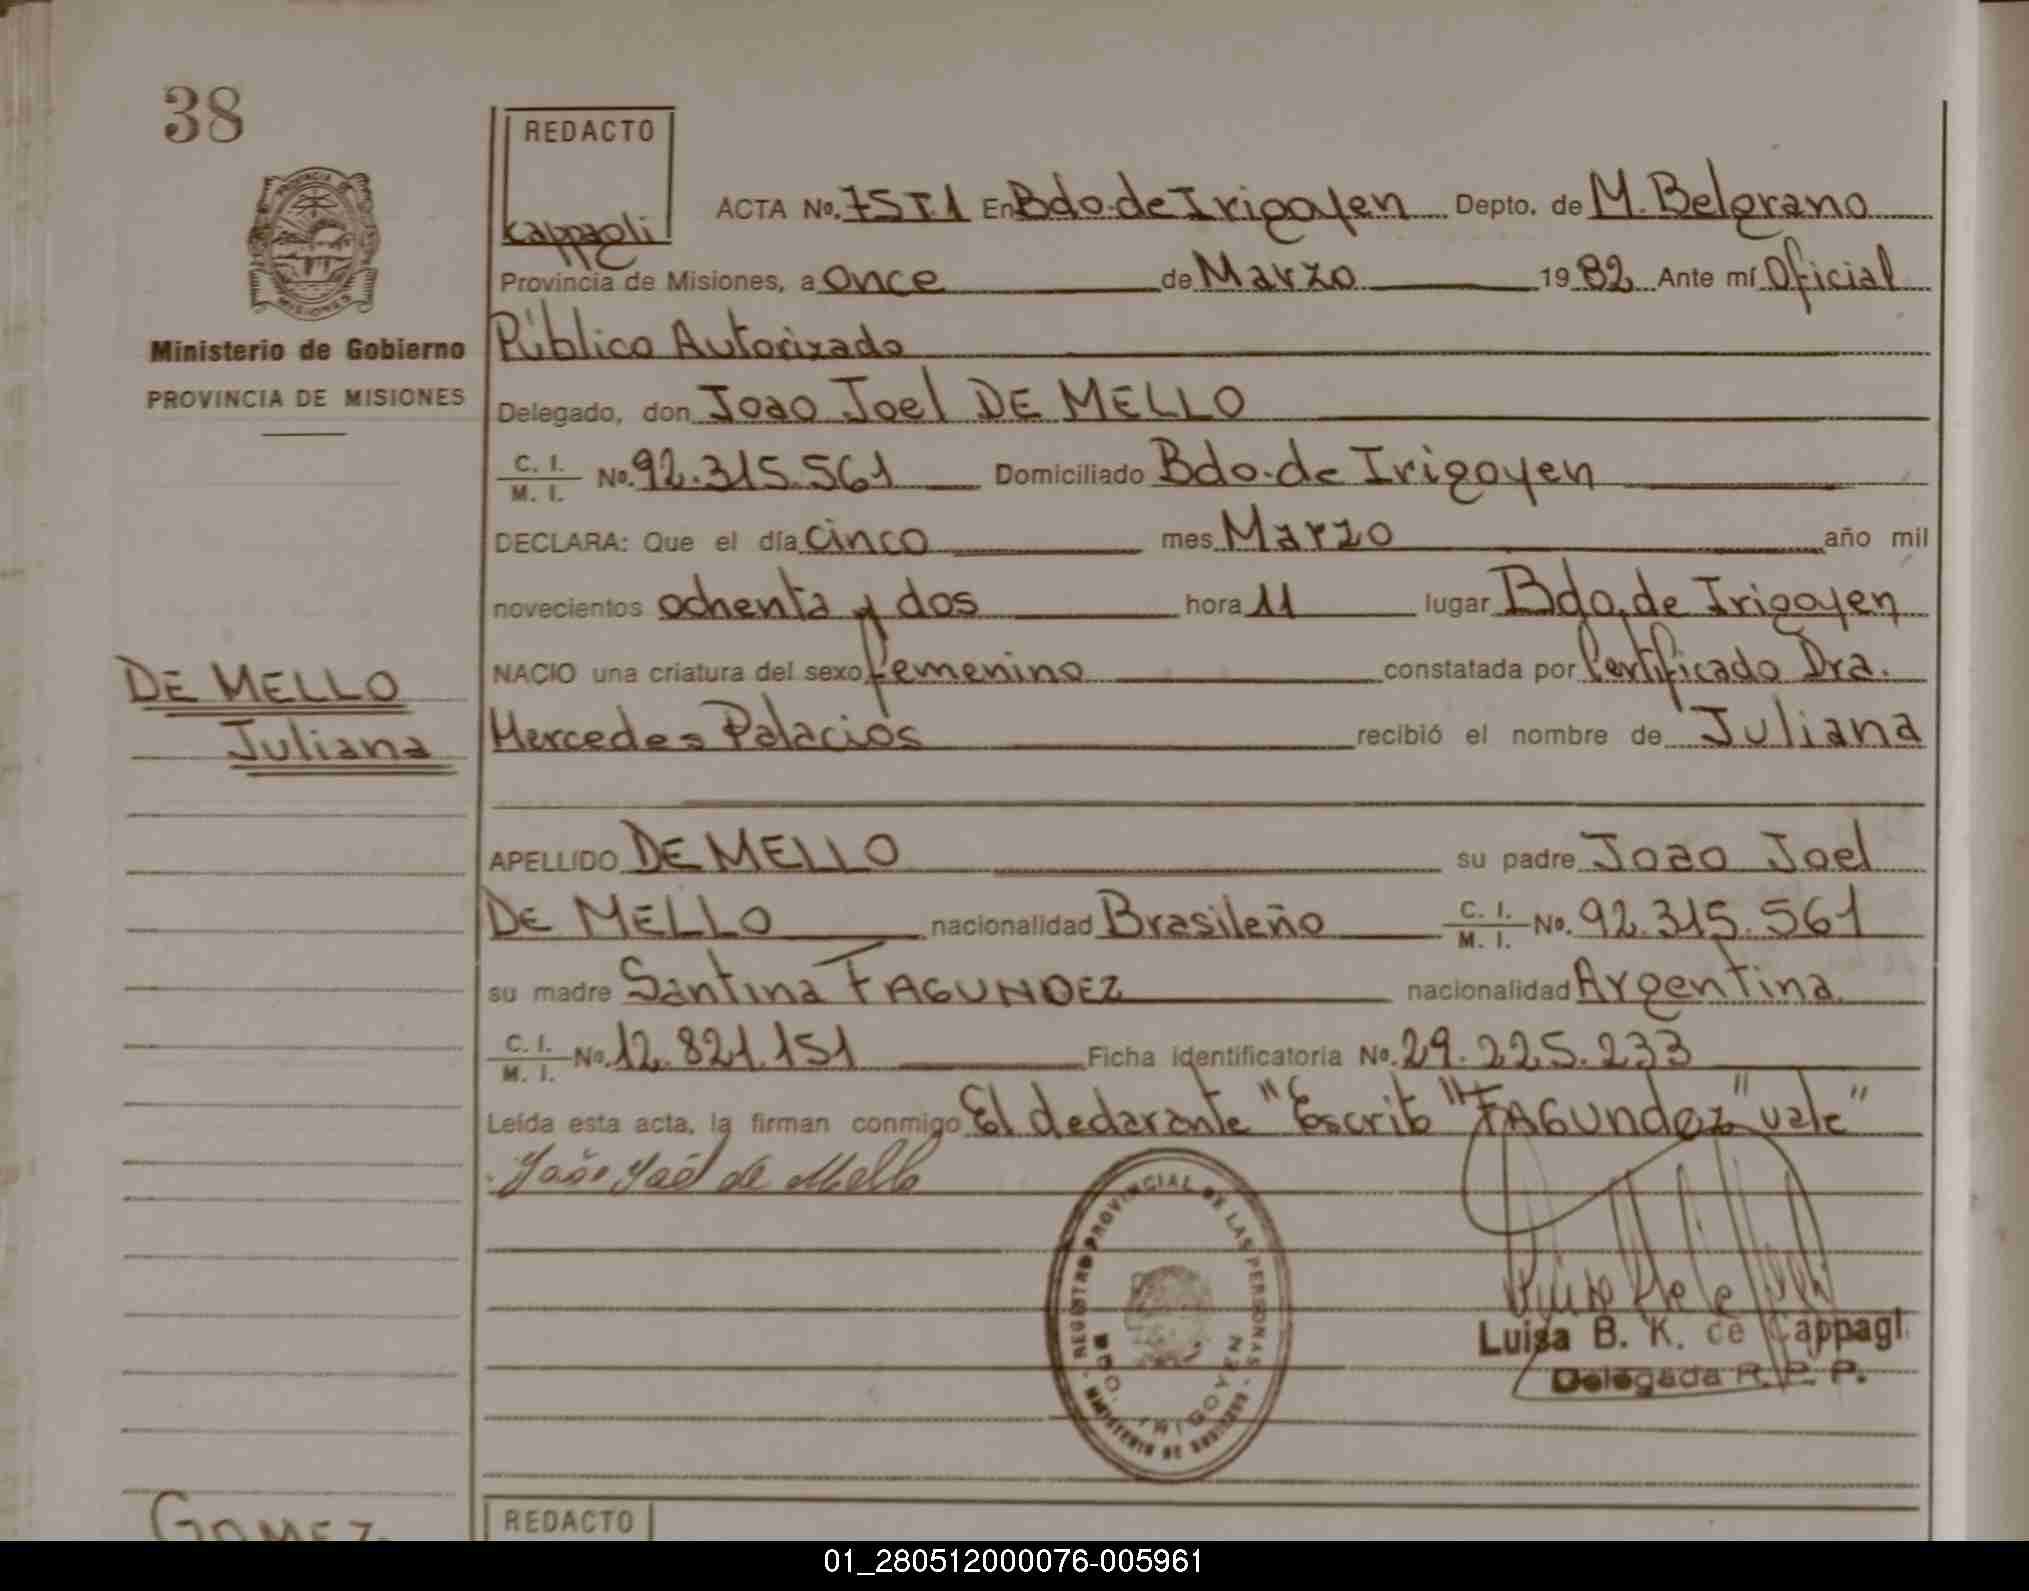 38
REDACTO
Cappagli
PROVINCIA DE
MISIONES
Ministerio de Gobierno
PROVINCIA DE MISIONES
ACTA No. 75 T.1 En Bdo. de Irigoyen Depto. de M. Belgrano
Provincia de Misiones, a once de Marzo 1982 Ante mí Oficial
Público Autorizado
Delegado, don Joao Joel DE MELLO
C. I. / M. I. No. 92.315.561 Domiciliado Bdo. de Irigoyen
DECLARA: Que el día cinco mes Marzo año mil
novecientos ochenta y dos hora 11 lugar Bdo. de Irigoyen
DE MELLO
Juliana
NACIO una criatura del sexo femenino constatada por Certificado Dra.
Mercedes Palacios recibió el nombre de Juliana
APELLIDO DE MELLO su padre Joao Joel
DE MELLO nacionalidad Brasileño C. I. / M. I. No. 92.315.561
su madre Santina FAGUNDEZ nacionalidad Argentina
C. I. / M. I. No. 12.821.151 Ficha identificatoria No. 29.225.233
Leída esta acta, la firman conmigo El declarante "Escrito" "FAGUNDEZ" vale"
João Joel de Mello
REGISTRO PROVINCIAL DE LAS PERSONAS
BDO. IRIGOYEN
MINISTERIO DE GOBIERNO
Luisa B. K. de Cappagl
Delegada R. P. P.
GOMEZ
REDACTO
01_280512000076-005961